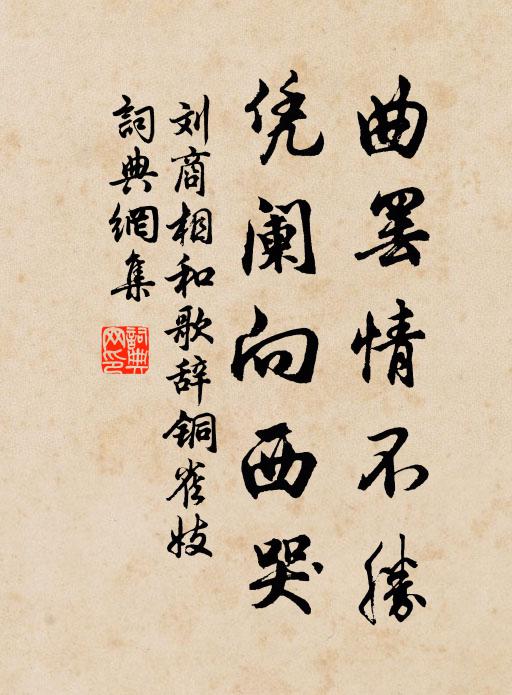 曲罢情不胜
凭阑向西哭
刘商相和歌辞铜雀妓
詞典網集
詞典
网印